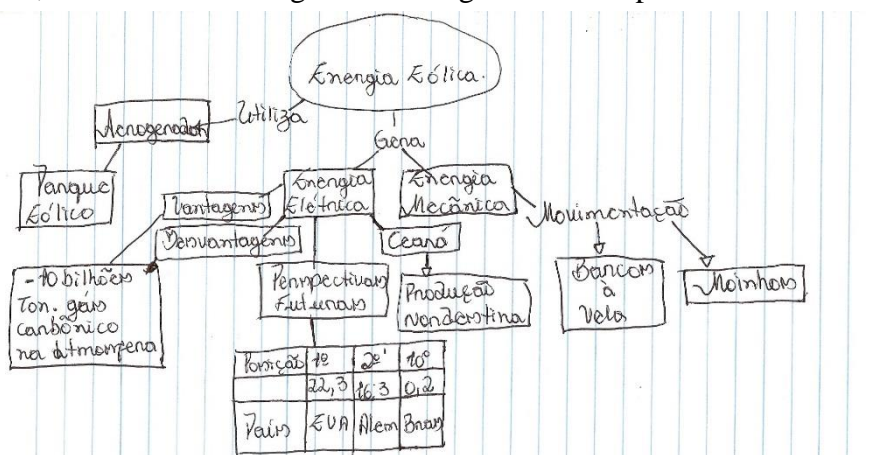 Energia Eólica.
Utiliza
Aerogerador
Gera
Parque
Eólico
Vantagens
Energia
Elétrica
Energia
Mecânica
Movimentação
Desvantagens
Ceará
- 10 bilhões
Ton. gás
carbônico
na Atmosfera
Perspectivas
Futuras
Produção
nordestina
Barcos
à
Vela
Moinhos
Posição 1º 2º 10º
22,3 16,3 0,2
País EUA Alem Bras